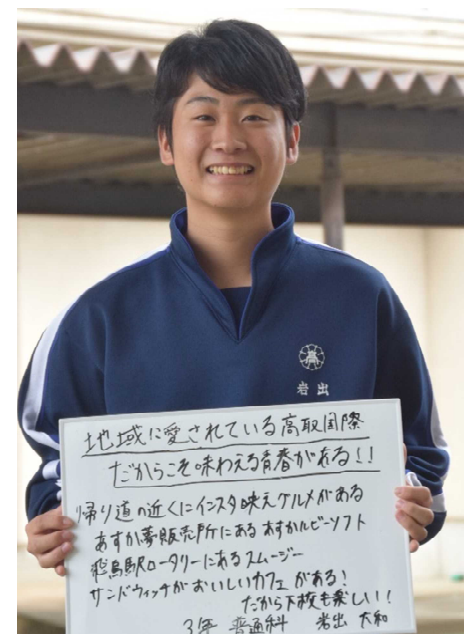 高
岩出
地域に愛されている高取国際
だからこそ味わえる青春がある!!
帰り道の近くにインスタ映えグルメがある
あすか夢販売所にあるあすかルビーソフト
飛鳥駅ロータリーにあるスムージー
サンドウィッチがおいしいカフェがある!
だから下校も楽しい!!
3年 普通科 岩出 大和